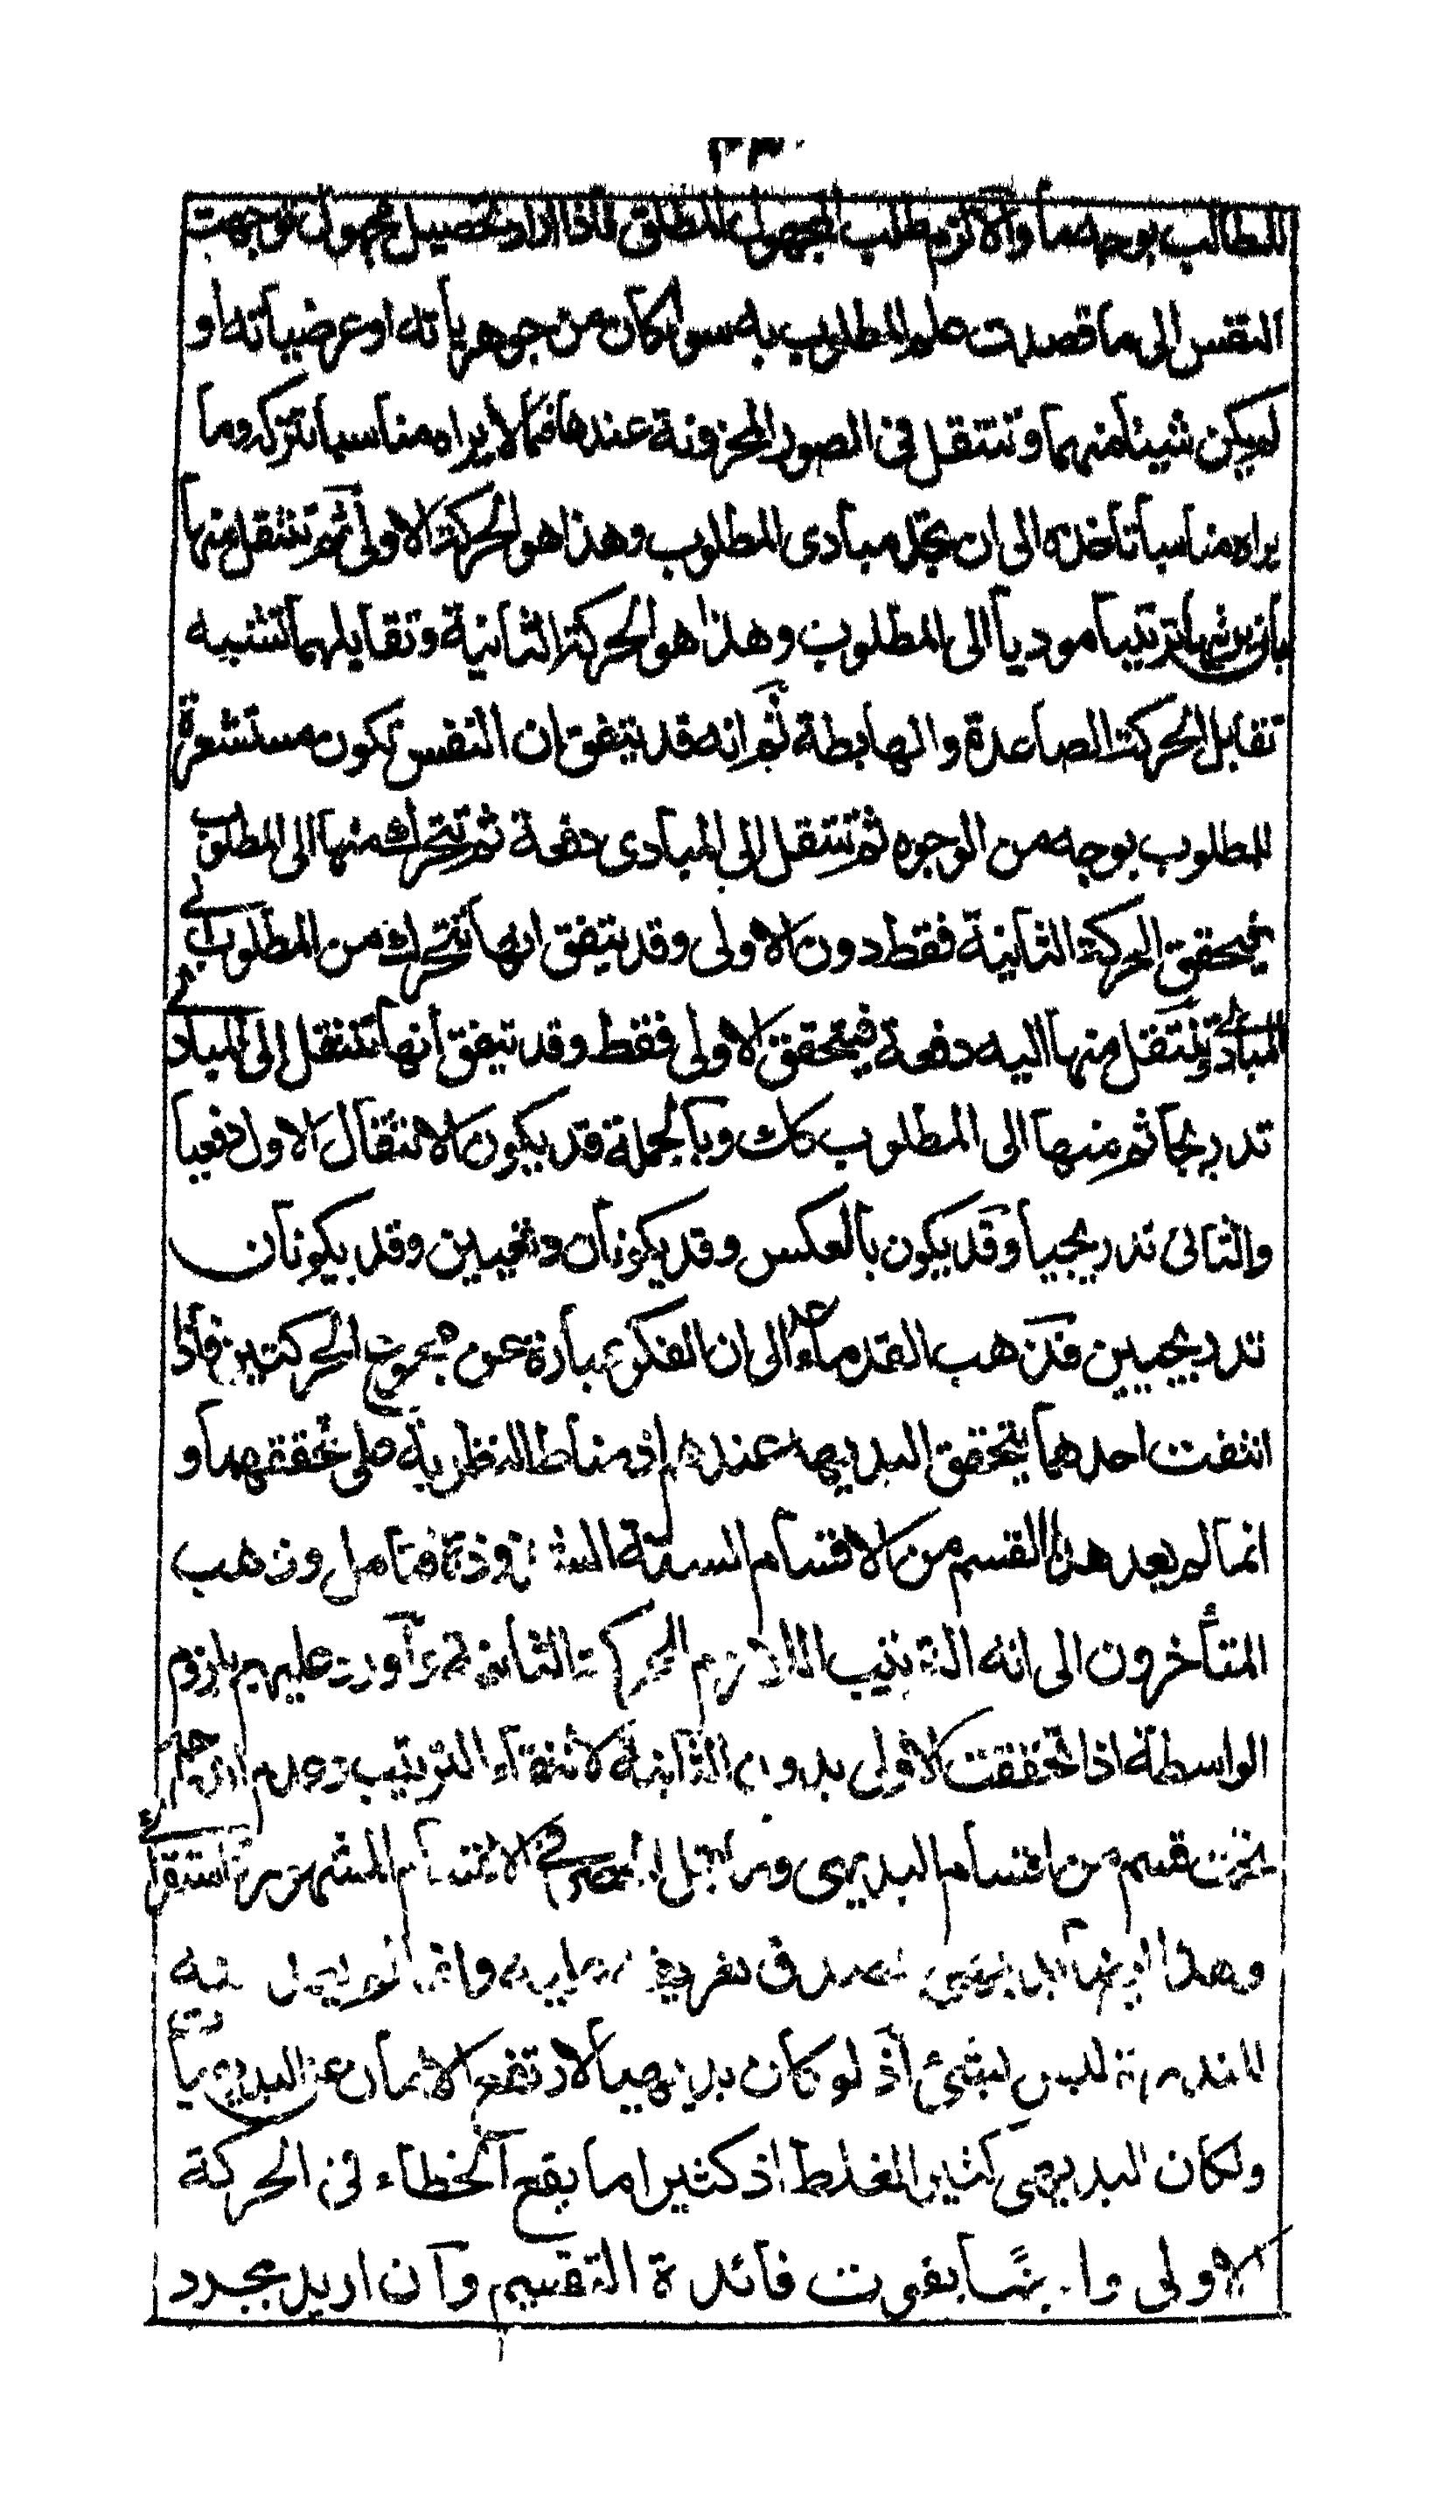 للطالب بوجه ما والا لزم طلب المجهول المطلق فاذا اراد تحصيل مجهول توجهت
النفس الى ما قصدت علم المطلوب به سواء كان من جوهرياته او عرضياته او
لم يكن شيئا منهما وتنتقل فى الصور المخزونة عندها فما لا يراه مناسبا تتركه وما
يراه مناسبا تاخذه الى ان تجد مبادى المطلوب وهذا هو الحركة الاولى ثم تنتقل منها
بان يرتبها ترتيبا موديا الى المطلوب وهذا هو الحركة الثانية وتقابلهما تشبيه
تقابل الحركة الصاعدة والهابطة ثم انه قد يتفق ان النفس تكون مستشعرة
للمطلوب بوجه من الوجوه ثم تنتقل الى المبادى دفعة ثم تتحرك منها الى المطلوب
فيتحقق الحركة الثانية فقط دون الاولى وقد يتفق انها تتحرك من المطلوب الى
المبادى وتنتقل منها اليه دفعة فيتحقق الاولى فقط وقد يتفق انها تنتقل الى المبادى
تدريجا ثم منها الى المطلوب كك وبالجملة قد يكون الانتقال الاول دفعيا
والثانى تدريجيا وقد يكون بالعكس وقد يكونان دفعيين وقد يكونان
تدريجيين فذهب القدماء الى ان الفكر عبارة عن مجموع الحركتين فاذا
انتفت احدهما يتحقق البديهة عندهم اذ مناط النظرية على تحققهما و
انما لم يعد هذا القسم من الاقسام الستة فتامل وذهب
المتأخرون الى انه الترتيب اللازم للحركة الثانية واورد عليهم بلزوم
الواسطة اذا تحققت الاولى بدون الثانية لانتفاء الترتيب وعدم
قسم من اقسام البديهى الاقسام المشهورة استقرائى
وهذا ليس بشئ تعريف عليه وانه لم
ليس بشئ اذ لو كان بديهيا لارتفع الامان عن البديهيات
ولكان البديهى كثير الغلط اذ كثيرا ما يقع الخطاء فى الحركة
الاولى يفوت فائدة التقسيم وان اريد مجرد